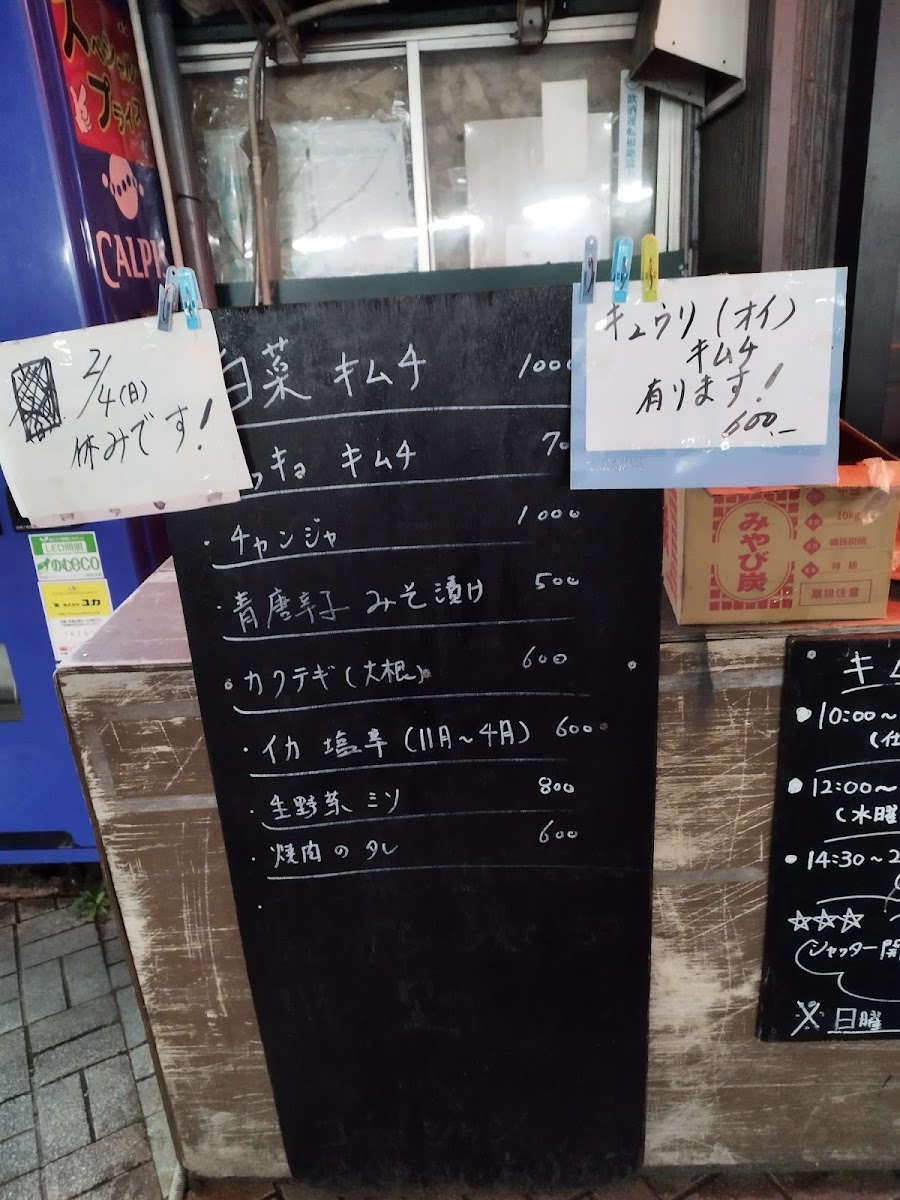 スペシャル
プライス
CALPI
LED照明
のむeco
株式会社 ユカ
2/4(日)
休みです!
キュウリ(オイ)
キムチ
有ります!
600.-
白菜 キムチ 1000
っきょ キムチ 70
・チャンジャ 1000
・青唐辛子 みそ漬け 500
・カクテギ(大根) 600
・イカ 塩辛 (11月〜4月) 600
・生野菜 ミソ 800
・焼肉のタレ 600
みやび炭
10kg
特級
取扱注意
キム
●10:00〜
(仕
●12:00〜
(水曜
●14:30〜2
☆☆☆
(シャッター開
※日曜